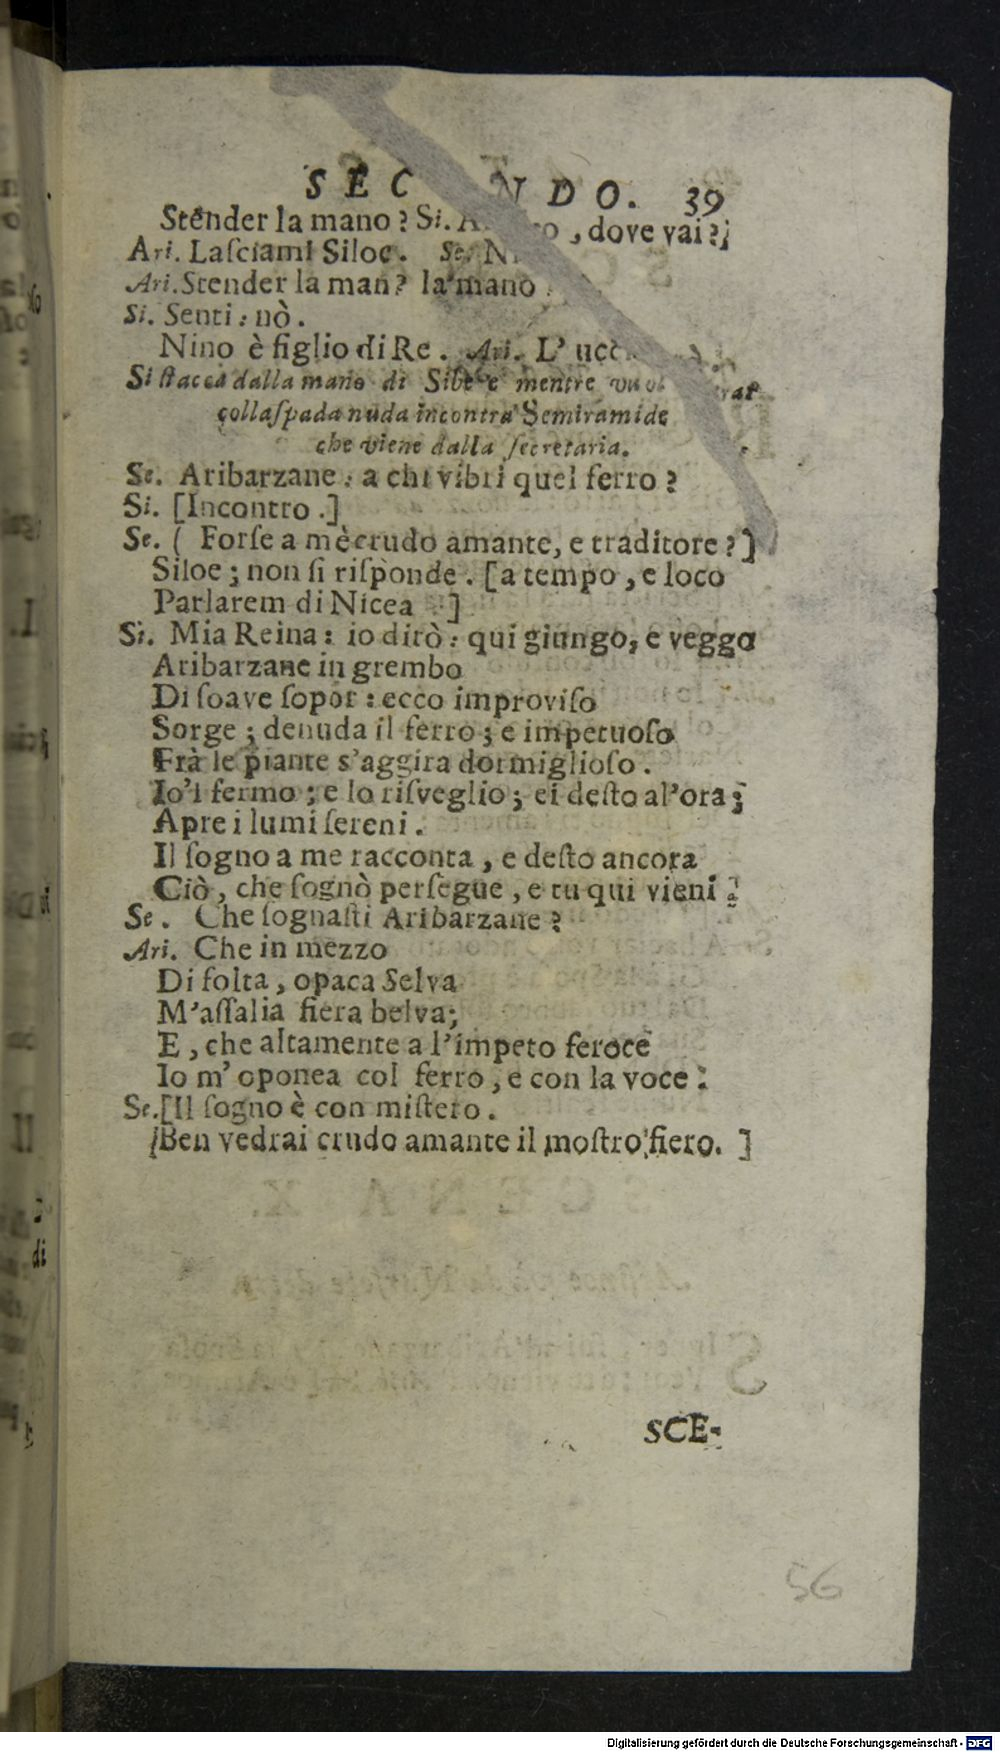 SEC NDO. 39
Stender la mano? Si. , dove vai?
Ari. Laſciami Siloe. Se.
Ari. Stender la man? la mano
Si. Senti: nò.
Nino è figlio di Re. Ari. L'
Si ſtacca dalla mano di Siloe e mentre
colla ſpada nuda incontra Semiramide
che viene dalla ſecretaria.
Se. Aribarzane: a chi vibri quel ferro?
Si. [Incontro.]
Se. ( Forſe a mè crudo amante, e traditore?]
Siloe; non ſi riſponde. [a tempo, e loco
Parlarem di Nicea .]
Si. Mia Reina: io dirò: qui giungo, e veggo
Aribarzane in grembo
Di ſoave ſopor: ecco improviſo
Sorge; denuda il ferro; e impetuoſo
Frà le piante s'aggira dormiglioſo.
Io'l fermo; e lo riſveglio; ei deſto al'ora;
Apre i lumi ſereni.
Il ſogno a me racconta, e deſto ancora
Ciò, che ſognò perſegue, e tu qui vieni?
Se. Che ſognaſti Aribarzane?
Ari. Che in mezzo
Di folta, opaca Selva
M'aſſalia fiera belva;
E, che altamente a l'impeto feroce
Io m'oponea col ferro, e con la voce.
Se. [Il ſogno è con miſtero.
Ben vedrai crudo amante il moſtro fiero. ]
SCE-
56
Digitalisierung gefördert durch die Deutsche Forschungsgemeinschaft - DFG